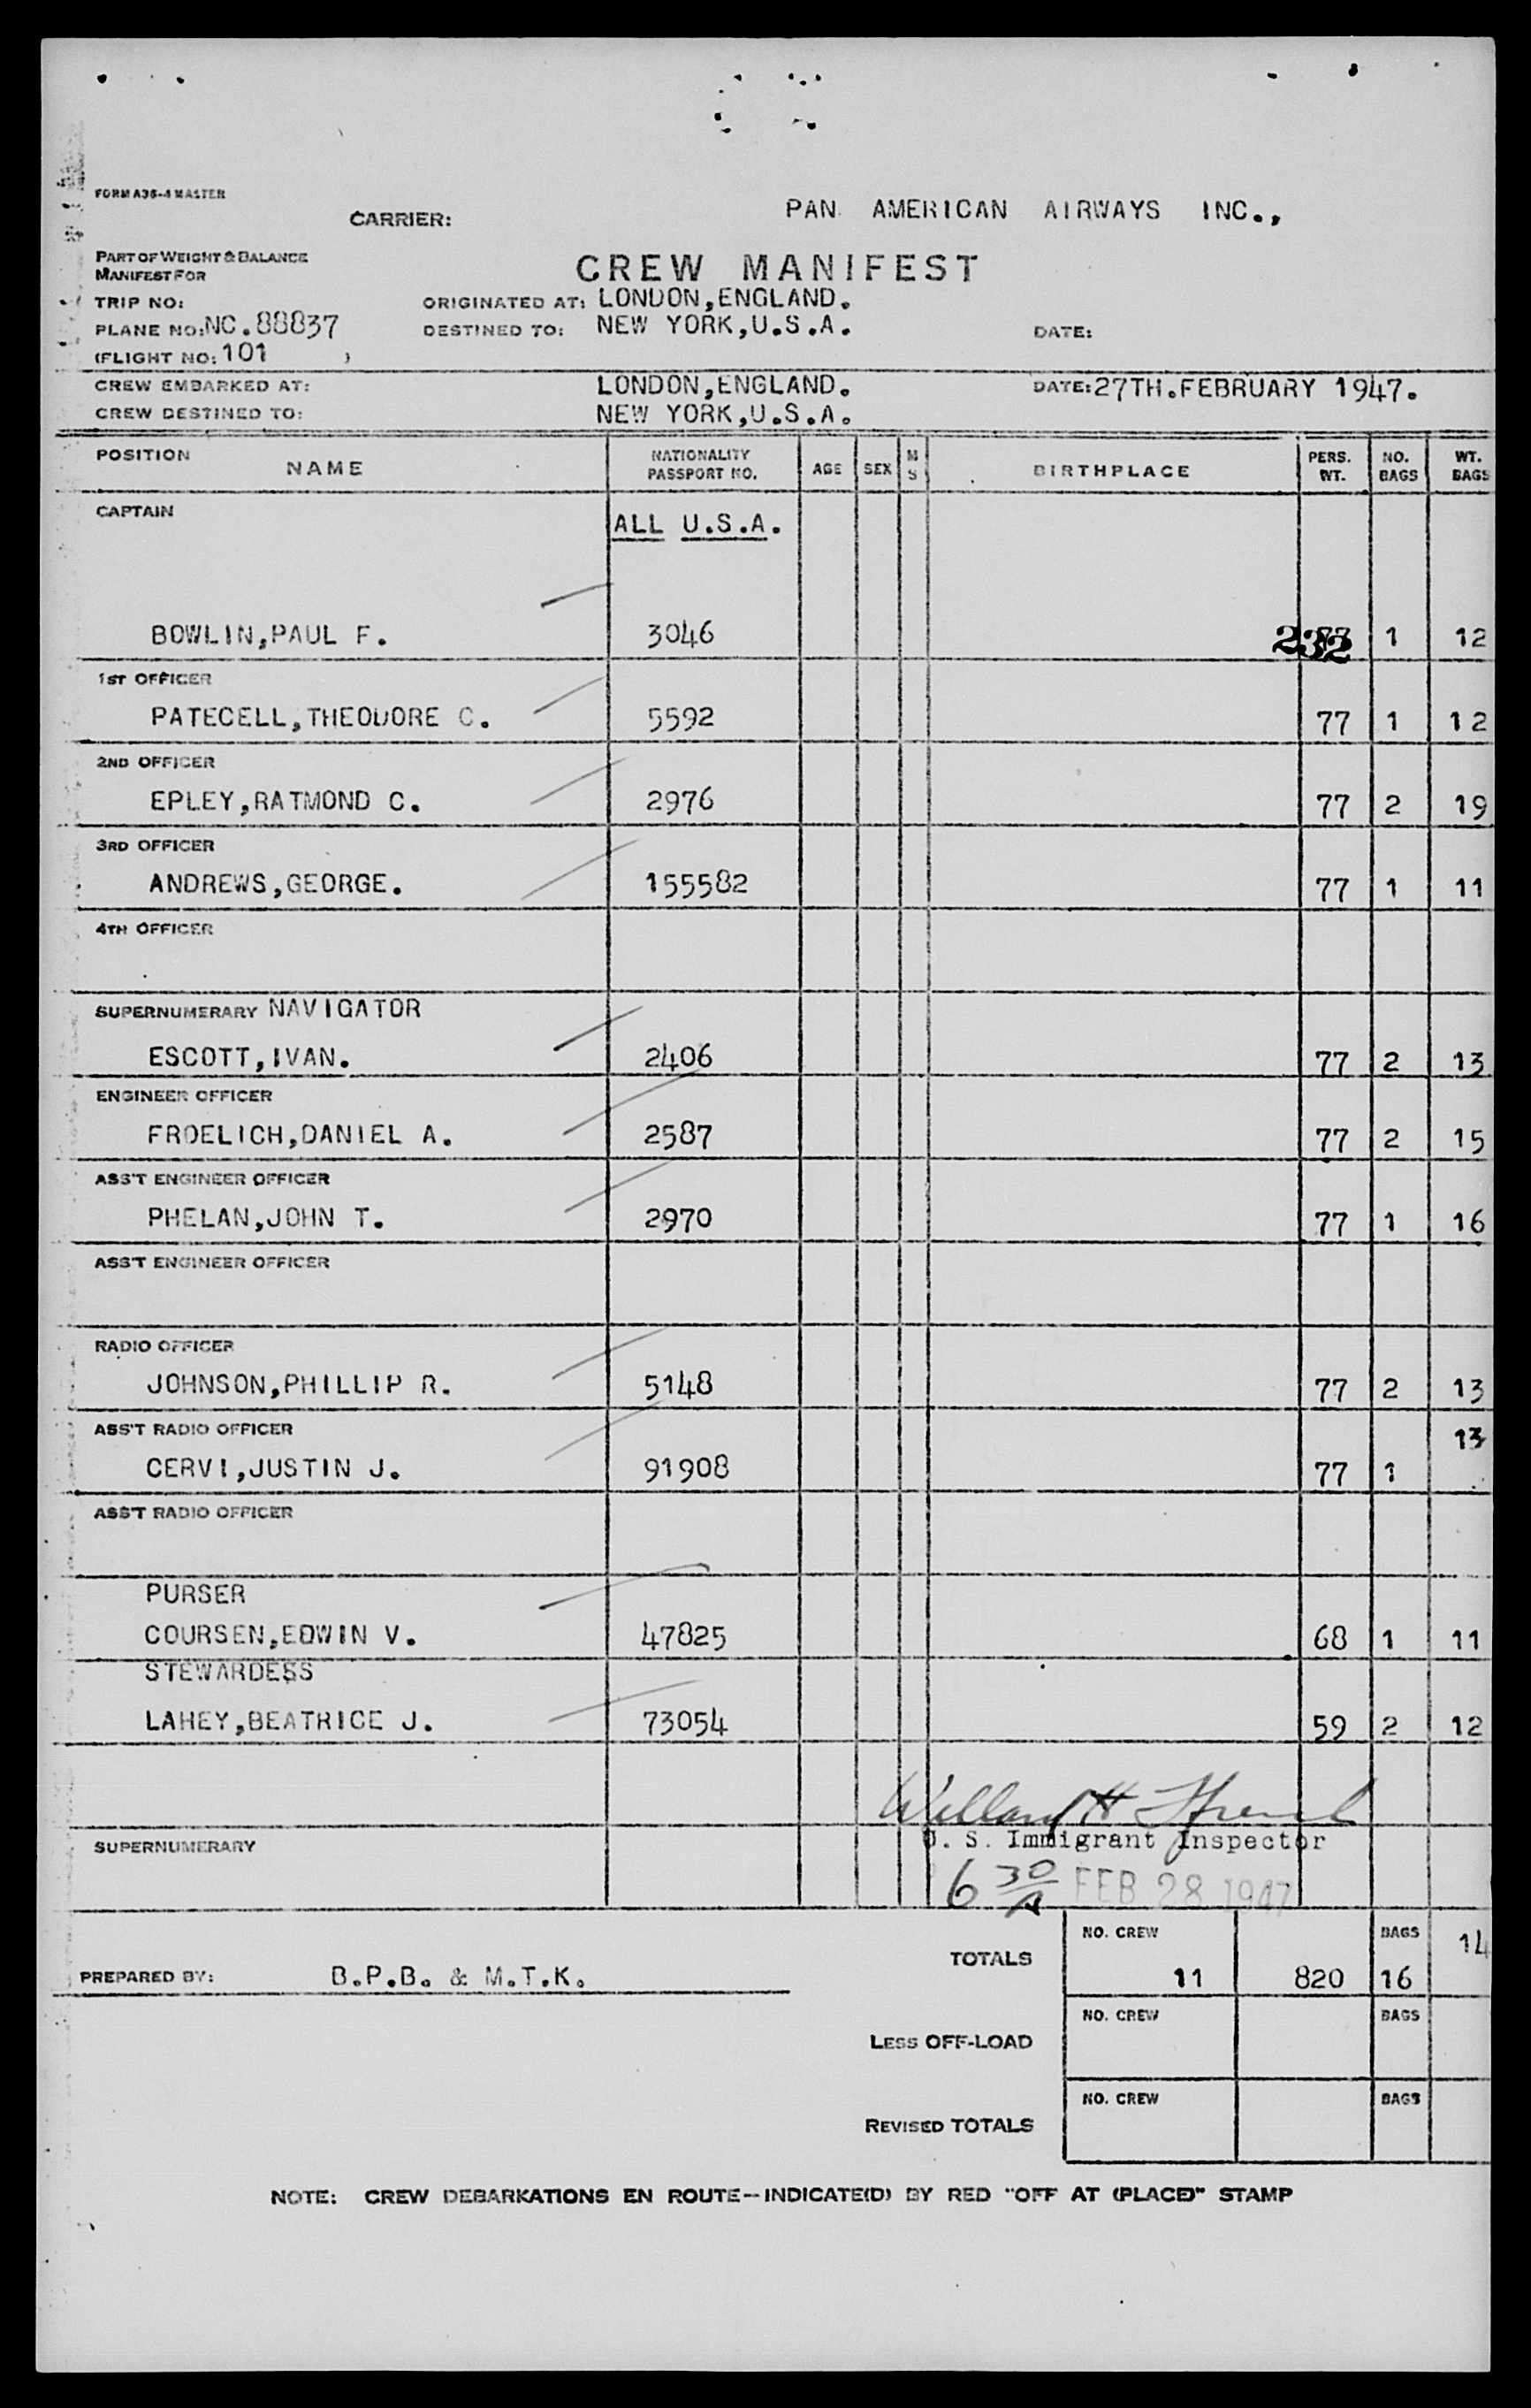 FORM A36-4 MASTER
CARRIER: PAN AMERICAN AIRWAYS INC.,
PART OF WEIGHT & BALANCE
MANIFEST FOR
CREW MANIFEST
TRIP NO: ORIGINATED AT: LONDON,ENGLAND.
PLANE NO: NC.88837 DESTINED TO: NEW YORK,U.S.A. DATE:
(FLIGHT NO: 101 )
CREW EMBARKED AT: LONDON,ENGLAND. DATE: 27TH.FEBRUARY 1947.
CREW DESTINED TO: NEW YORK,U.S.A.
POSITION NAME NATIONALITY PASSPORT NO. AGE SEX M S BIRTHPLACE PERS. WT. NO. BAGS WT. BAGS
CAPTAIN ALL U.S.A.
BOWLIN,PAUL F. 3046 232 1 12
1ST OFFICER
PATECELL,THEODORE C. 5592 77 1 12
2ND OFFICER
EPLEY,RATMOND C. 2976 77 2 19
3RD OFFICER
ANDREWS,GEORGE. 155582 77 1 11
4TH OFFICER
SUPERNUMERARY NAVIGATOR
ESCOTT,IVAN. 2406 77 2 13
ENGINEER OFFICER
FROELICH,DANIEL A. 2587 77 2 15
ASS'T ENGINEER OFFICER
PHELAN,JOHN T. 2970 77 1 16
ASS'T ENGINEER OFFICER
RADIO OFFICER
JOHNSON,PHILLIP R. 5148 77 2 13
ASS'T RADIO OFFICER
CERVI,JUSTIN J. 91908 77 1 13
ASS'T RADIO OFFICER
PURSER
COURSEN,EDWIN V. 47825 68 1 11
STEWARDESS
LAHEY,BEATRICE J. 73054 59 2 12
Willard H
U. S. Immigrant Inspector
SUPERNUMERARY
6 30/A FEB 28 1947
TOTALS NO. CREW 11 820 BAGS 16 14
PREPARED BY: B.P.B. & M.T.K.
LESS OFF-LOAD NO. CREW BAGS
REVISED TOTALS NO. CREW BAGS
NOTE: CREW DEBARKATIONS EN ROUTE--INDICATE(D) BY RED "OFF AT (PLACE)" STAMP